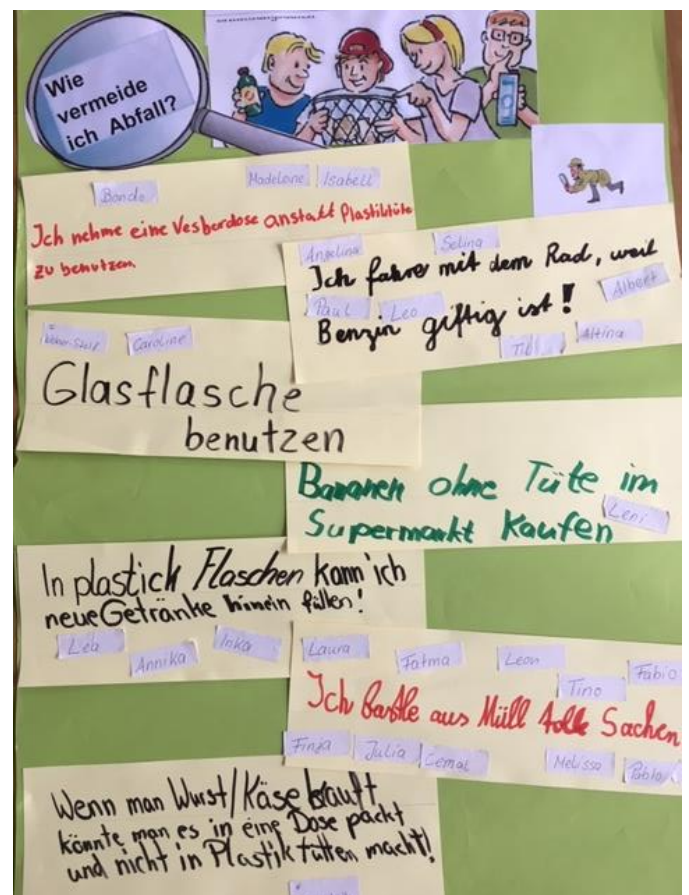 Wie
vermeide
ich Abfall?
Bando Madeleine Isabell
Ich nehme eine Vesberdose anstatt Plastiktüte
zu benutzen.
Angelina Selina
Ich fahre mit dem Rad, weil
Paul Leo Albert
Benzin giftig ist!
Altina
Caroline
Glasflasche
benutzen
Bananen ohne Tüte im
Leni
Supermarkt Kaufen
In plastick Flaschen kann ich
neue Getränke hinein füllen!
Lea Annika Inka
Laura Fatma Leon Fabio
Tino
Ich Bastle aus Müll tolle Sachen
Finja Julia Cemal Melissa Pablo
Wenn man Wurst/Käse kauft
könnte man es in eine Dose packt
und nicht in Plastik tütten macht!